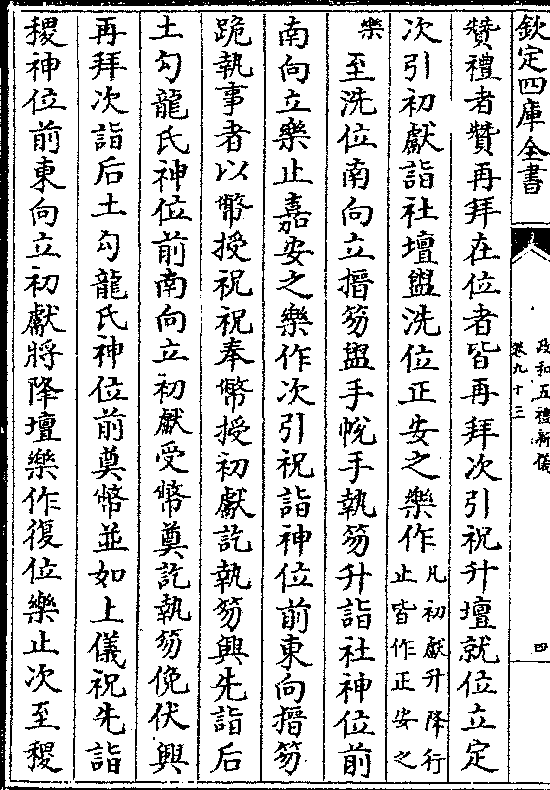 欽定四庫全書
政和五禮新儀
卷九十三
四
贊禮者贊再拜在位者皆再拜次引祝升壇就位立定
次引初獻詣社壇盥洗位正安之樂作凡初獻升降行止皆作正安之
樂至洗位南向立搢笏盥手帨手執笏升詣社神位前
南向立樂止嘉安之樂作次引祝詣神位前東向搢笏
跪執事者以幣授祝祝奉幣授初獻訖執笏興先詣后
土勾龍氏神位前南向立初獻受幣奠訖執笏俛伏興
再拜次詣后土勾龍氏神位前奠幣並如上儀祝先詣
稷神位前東向立初獻將降壇樂作復位樂止次至稷